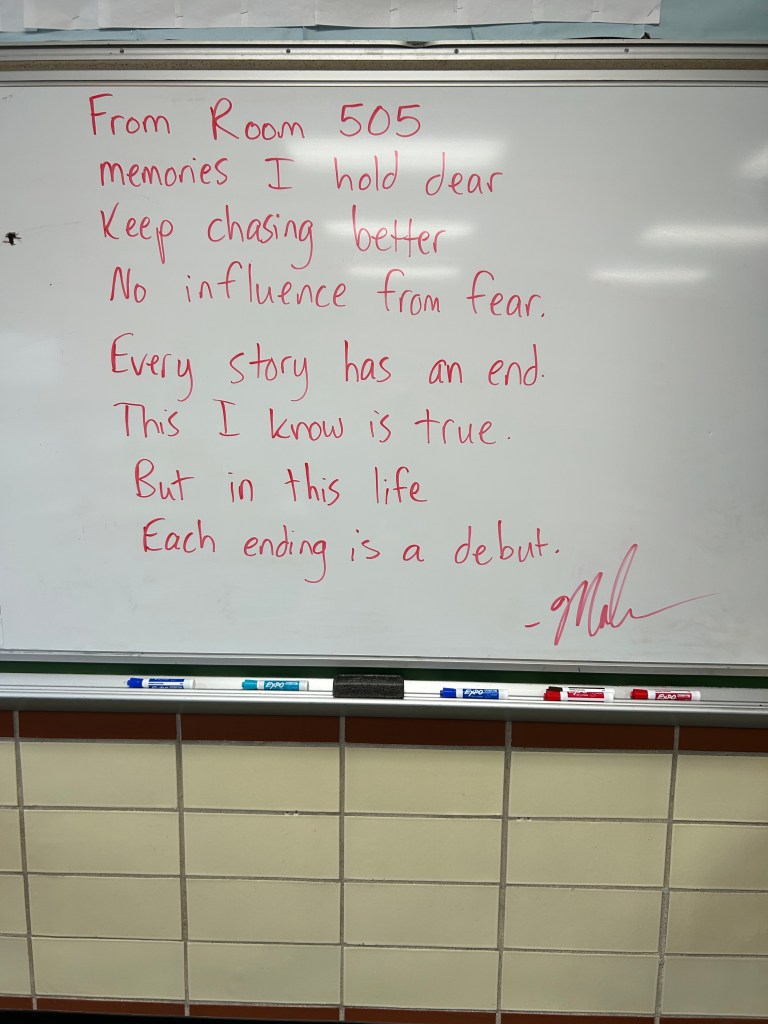 From Room 505
memories I hold dear
Keep chasing better
No influence from fear.
Every story has an end.
This I know is true.
But in this life
Each ending is a debut.
EXPO
EXPO
EXPO